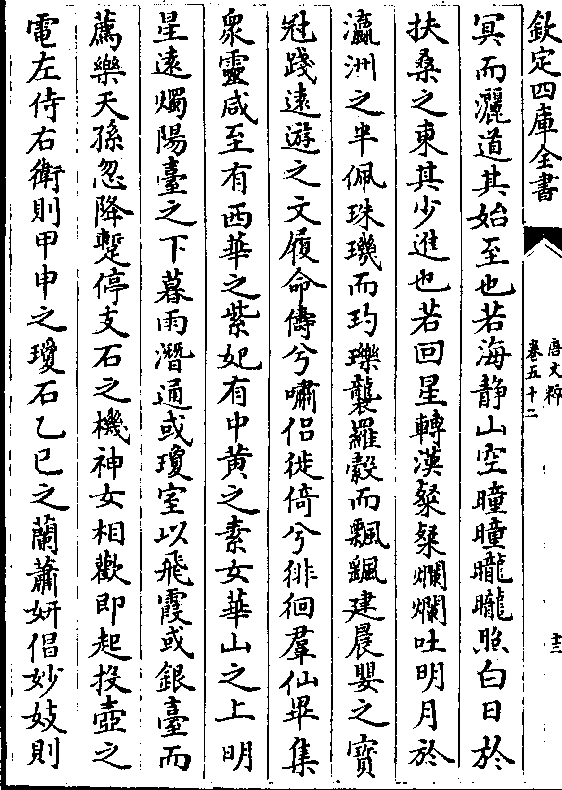 欽定四庫全書
唐文粹
卷五十二
十三
冥而灑道其始至也若海静山空曈曈曨曨照白日於
扶桑之東其少進也若回星轉漢粲粲爛爛吐明月於
瀛洲之半佩珠璣而玓瓅襲羅縠而飄颻建晨嬰之寳
冠踐遠遊之文履命儔兮嘯侣徙倚兮徘徊羣仙畢集
衆靈咸至有西華之紫妃有中黄之素女華山之上明
星遠燭陽臺之下暮雨潛通或瓊室以飛霞或銀臺而
薦樂天孫忽降蹔停支石之機神女相歡即起投壺之
電左侍右衛則甲申之瓊石乙巳之蘭蕭妍倡妙妓則